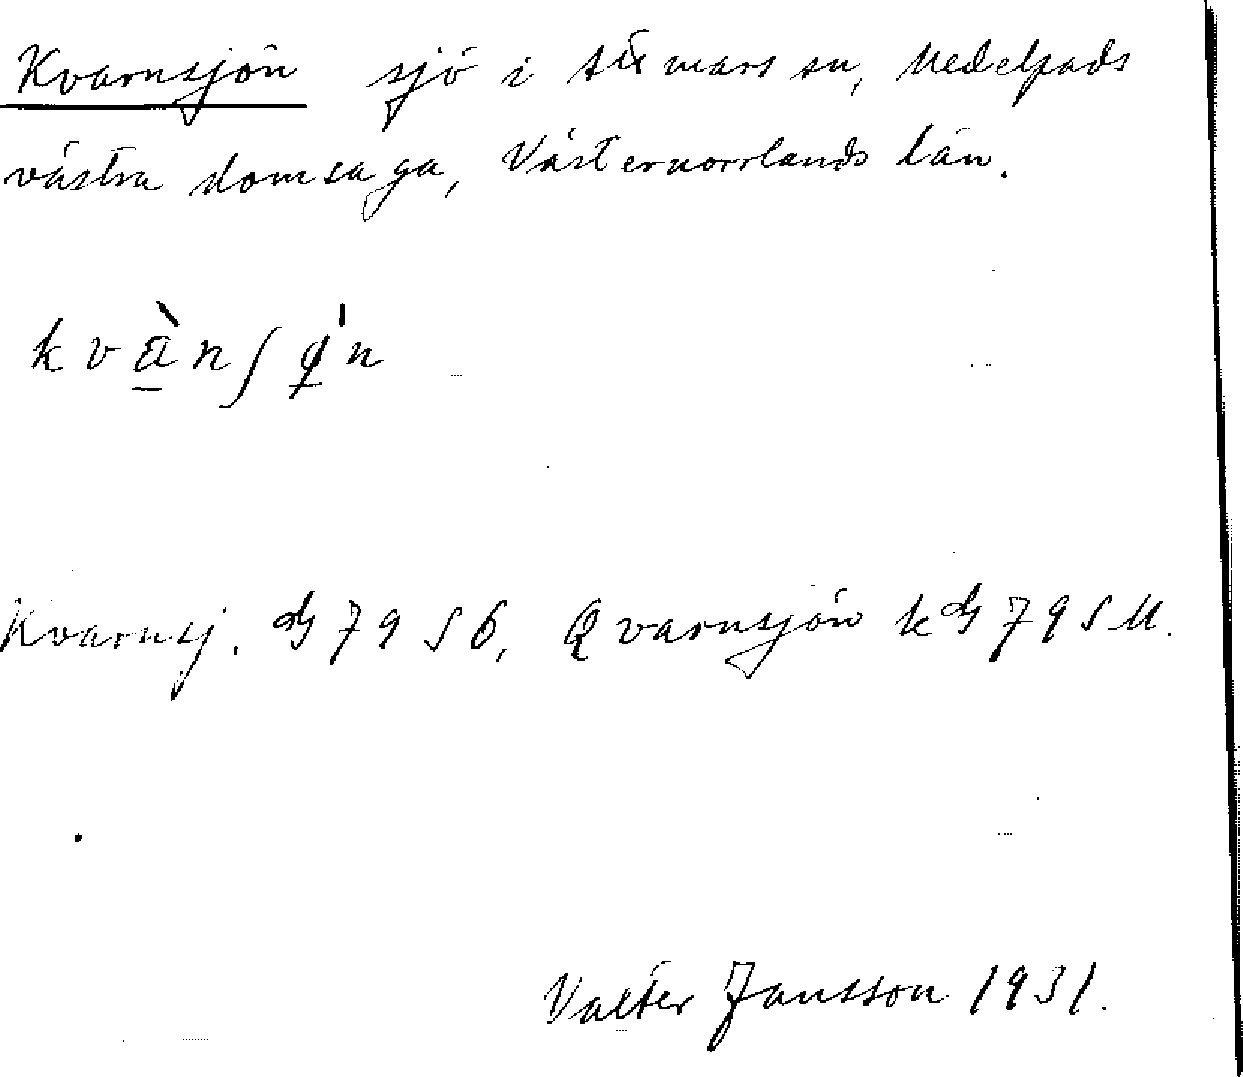 Kvarnsjön sjö i Attmars sn, Medelpads
västra domsaga, Västernorrlands län.
kvä̀nʃǿn
Kvarnsj. dG 79 S6, Qvarnsjön kdG 79 SU.
Valter Jansson 1931.